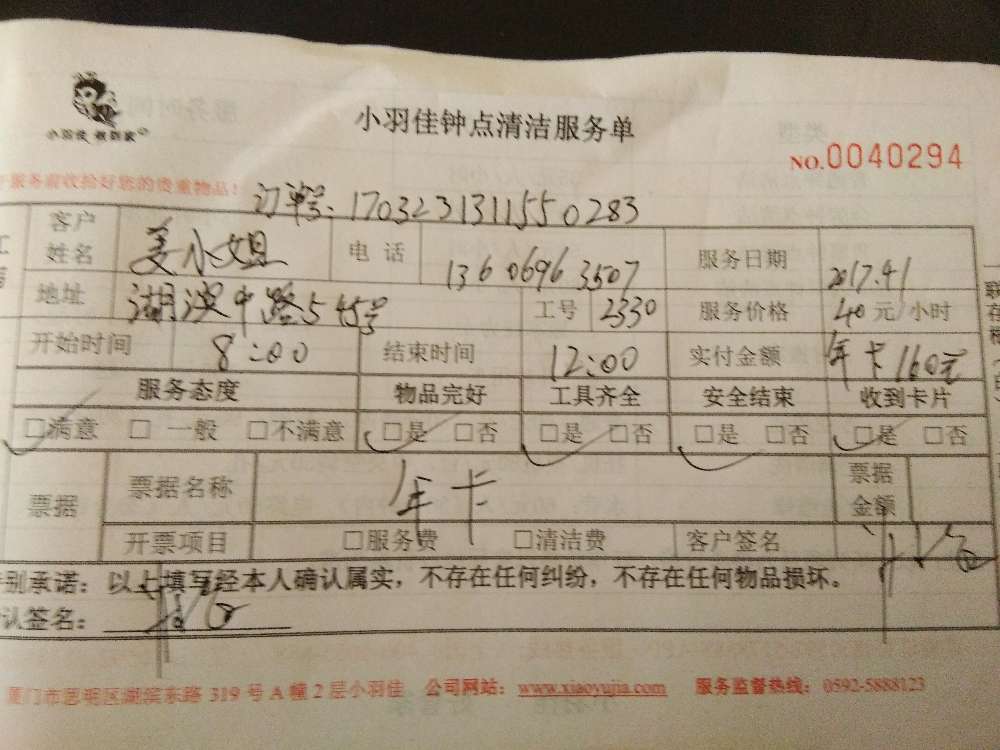 小羽佳钟点清洁服务单
小羽佳 帮到家
NO.0040294
服务前收拾好您的贵重物品!
订单号:17032313111550283
客户姓名 姜小姐 电话 13606963507 服务日期 2017.4.1
地址 湖滨中路545号 工号 2330 服务价格 40元/小时
开始时间 8:00 结束时间 12:00 实付金额 年卡160元
服务态度 物品完好 工具齐全 安全结束 收到卡片
□满意 □一般 □不满意 □是 □否 □是 □否 □是 □否 □是 □否
票据 票据名称 年卡 票据金额
开票项目 □服务费 □清洁费 客户签名
别承诺:以上填写经本人确认属实,不存在任何纠纷,不存在任何物品损坏。
认签名:
厦门市思明区湖滨东路 319 号 A 幢 2 层小羽佳 公司网站:www.xiaoyujia.com 服务监督热线:0592-5888123